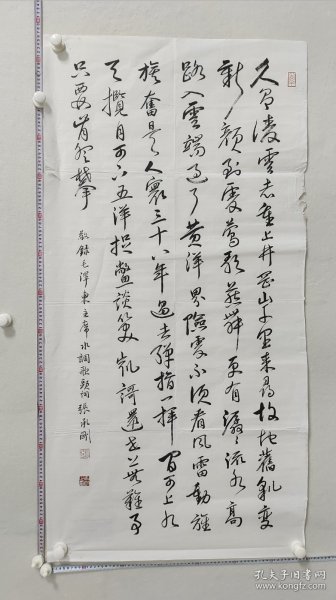 久有凌雲志重上井岡山千里來尋故地舊貌變
新顔到處鶯歌燕舞更有潺〻流水高
路入雲端過了黄洋界險處不須看風雷動旌
旗奮是人寰三十八年過去彈指一揮間可上九
天攬月可下五洋捉鱉談笑凱謌還世上無難事
只要肯登攀
敬錄毛澤東主席水調歌頭詞張永剛
孔夫子旧书网
kongfz.com